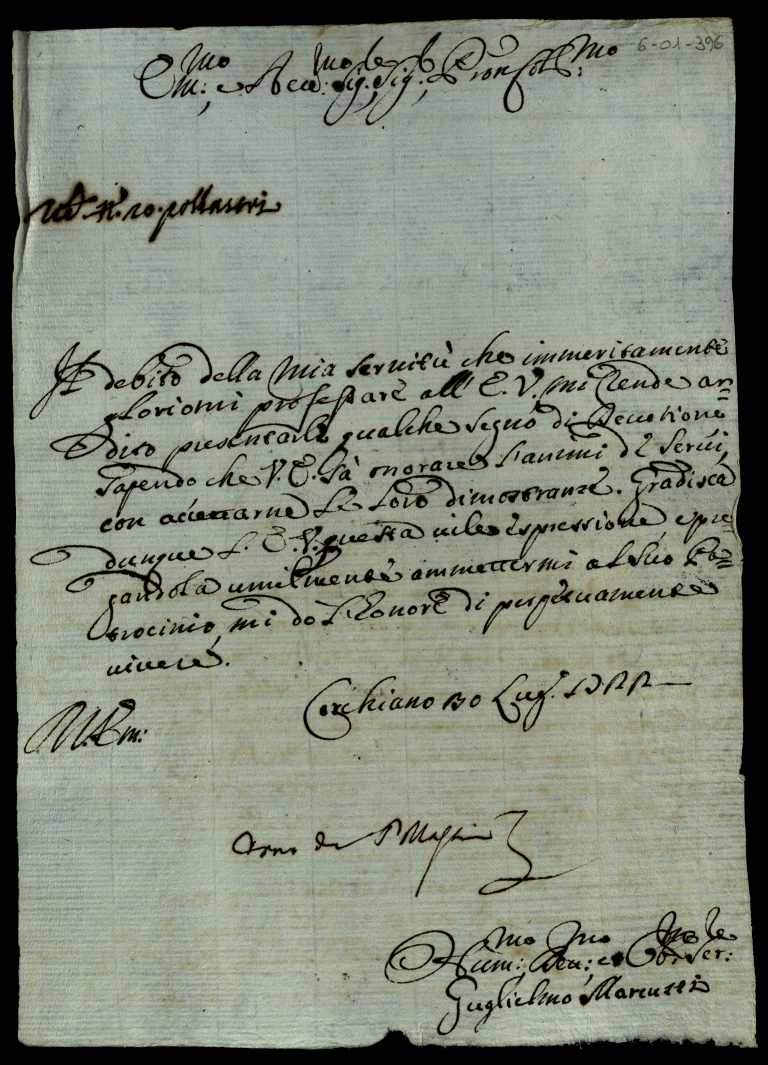 6-01-396
Em:mo e Reu:mo Sig:re Sig:re e Pron Col:mo
n. 20. pollastri
Il debito della mia seruitù che immeritamente
gloriomi professare all' E. V. mi rende ar=
dito presentarle qualche segno di deuotione
sapendo che V. E. sà onorare l'animi de serui,
con accettarne le loro dimostranze. Gradisca
dunque l' E. V. questa uile espressione, e pre
gandola umilmente ammettermi al suo Pa=
trocinio, mi dò l'honore di perpetuamente
uiuere.
Corchiano 30 Lug.
V. Em:
Hum:mo Deu:mo et Obl:mo Ser:re
Guglielmo Marcucci